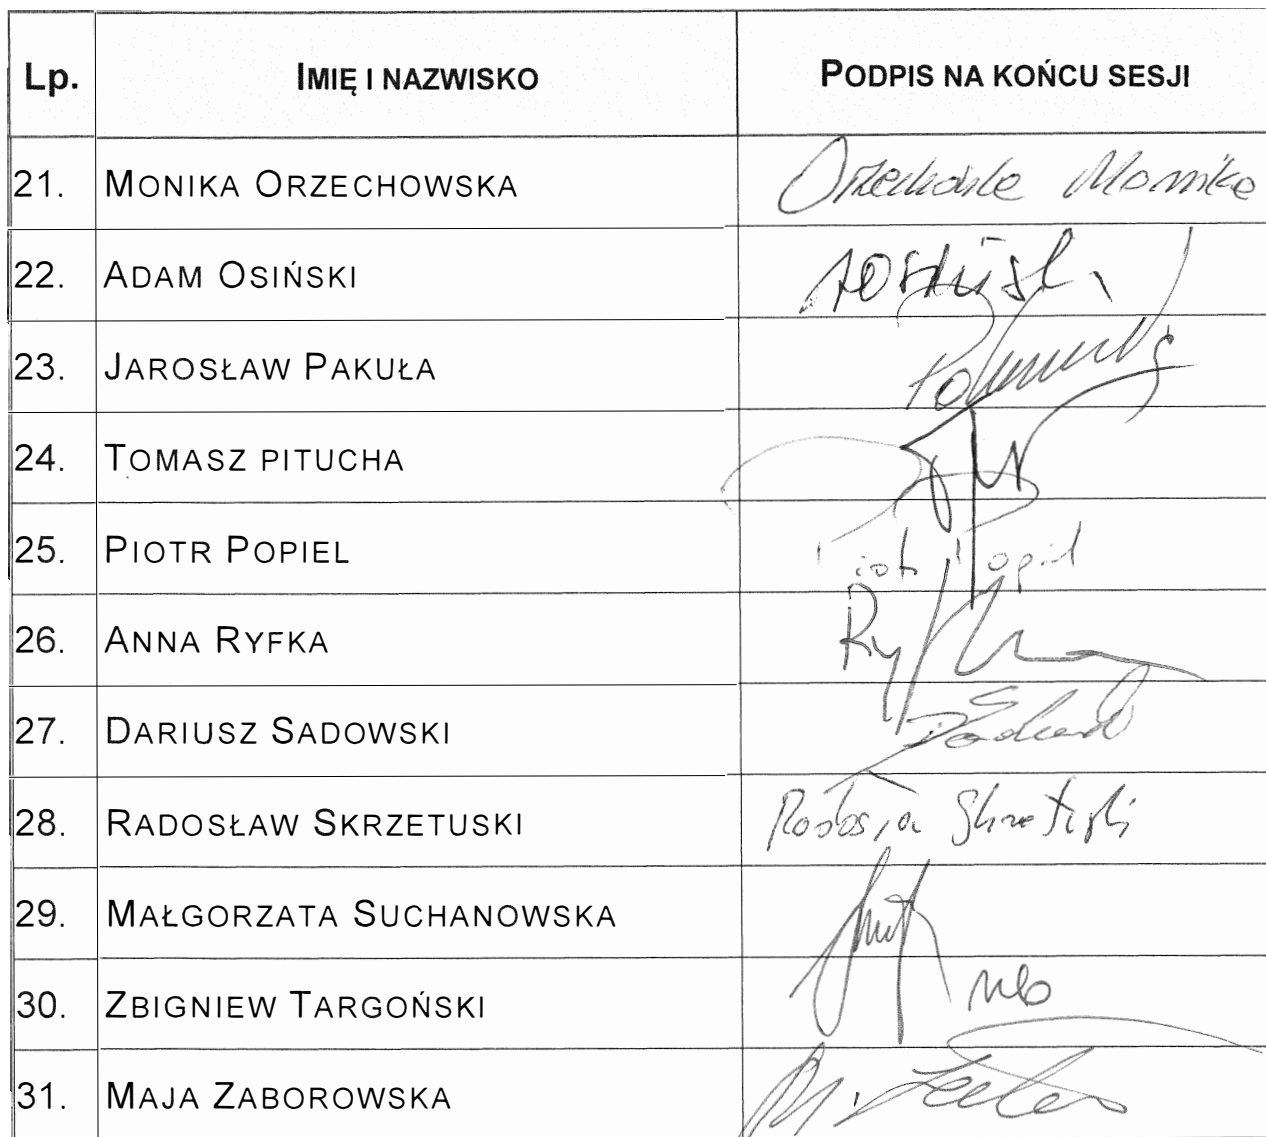 Lp. IMIĘ I NAZWISKO PODPIS NA KOŃCU SESJI
21. MONIKA ORZECHOWSKA Orzechowska Monika
22. ADAM OSIŃSKI
23. JAROSŁAW PAKUŁA
24. TOMASZ PITUCHA
25. PIOTR POPIEL Piotr Popiel
26. ANNA RYFKA Ryfka
27. DARIUSZ SADOWSKI
28. RADOSŁAW SKRZETUSKI
29. MAŁGORZATA SUCHANOWSKA
30. ZBIGNIEW TARGOŃSKI nb
31. MAJA ZABOROWSKA M.